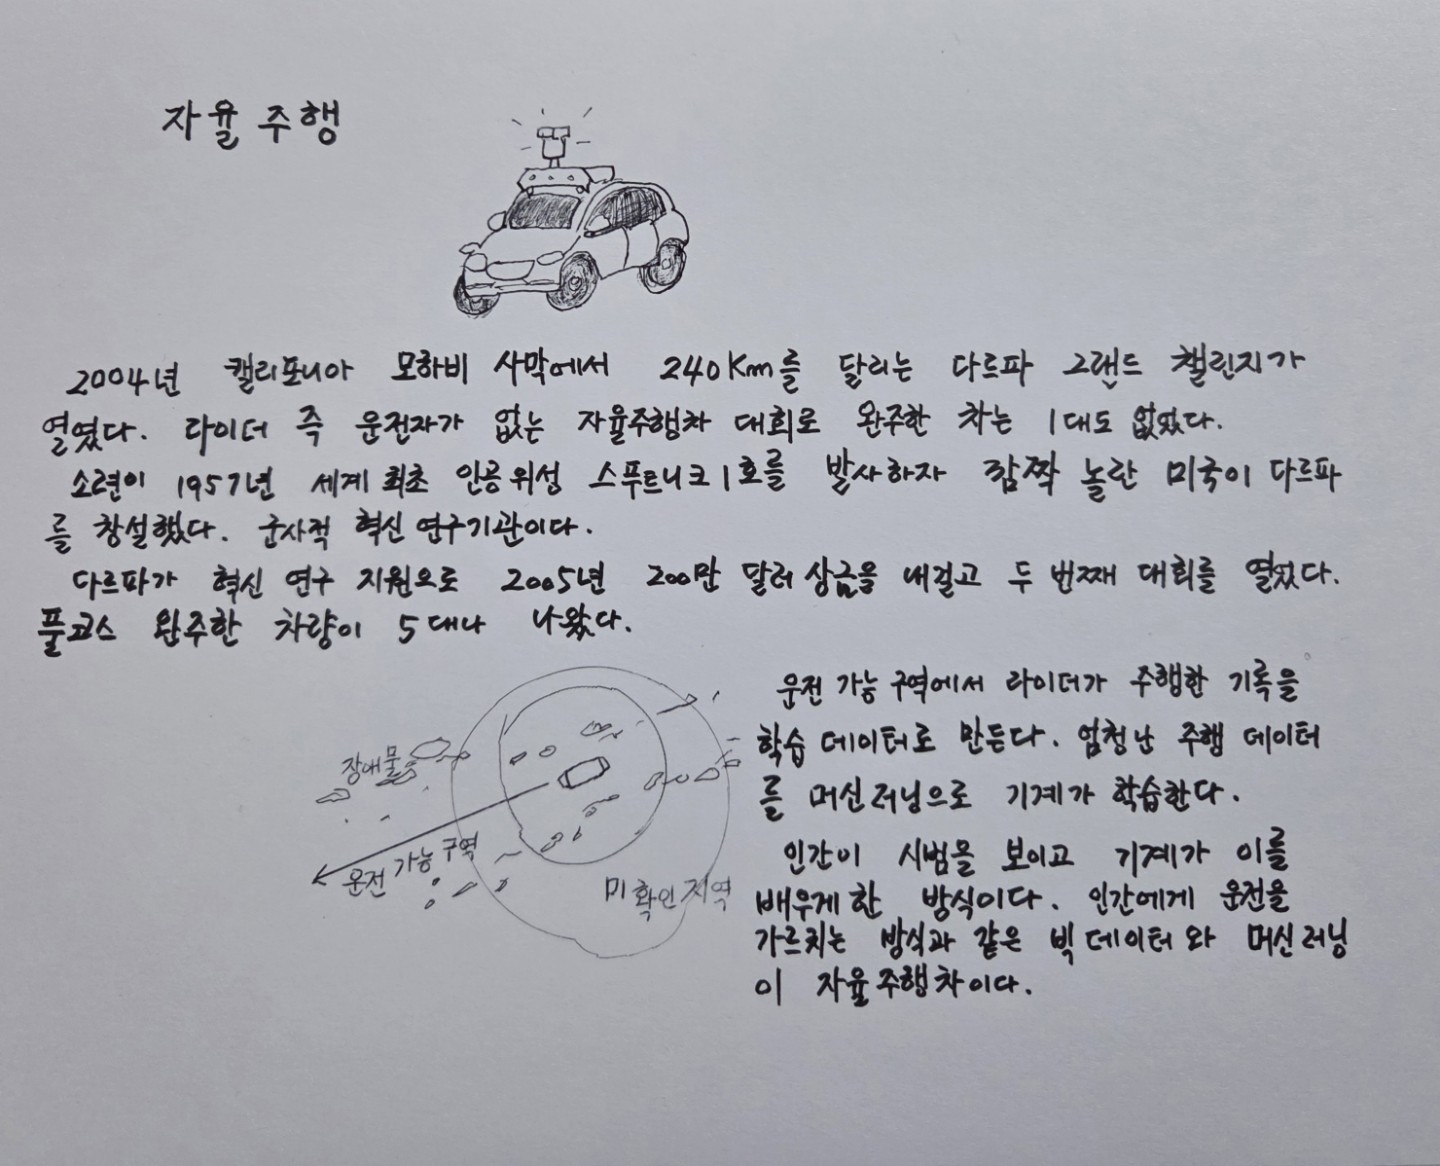 자율 주행
2004년 캘리포니아 모하비 사막에서 240Km를 달리는 다르파 그랜드 챌린지가
열렸다. 라이더 즉 운전자가 없는 자율주행차 대회로 완주한 차는 1대도 없었다.
소련이 1957년 세계 최초 인공위성 스푸트니크 1호를 발사하자 깜짝 놀란 미국이 다르파
를 창설했다. 군사적 혁신 연구기관이다.
다르파가 혁신 연구 지원으로 2005년 200만 달러 상금을 내걸고 두 번째 대회를 열었다.
풀코스 완주한 차량이 5대나 나왔다.
장애물
운전 가능 구역
미확인 지역
운전 가능 구역에서 라이더가 주행한 기록을
학습 데이터로 만든다. 엄청난 주행 데이터
를 머신러닝으로 기계가 학습한다.
인간이 시범을 보이고 기계가 이를
배우게 한 방식이다. 인간에게 운전을
가르치는 방식과 같은 빅데이터와 머신러닝
이 자율주행차이다.